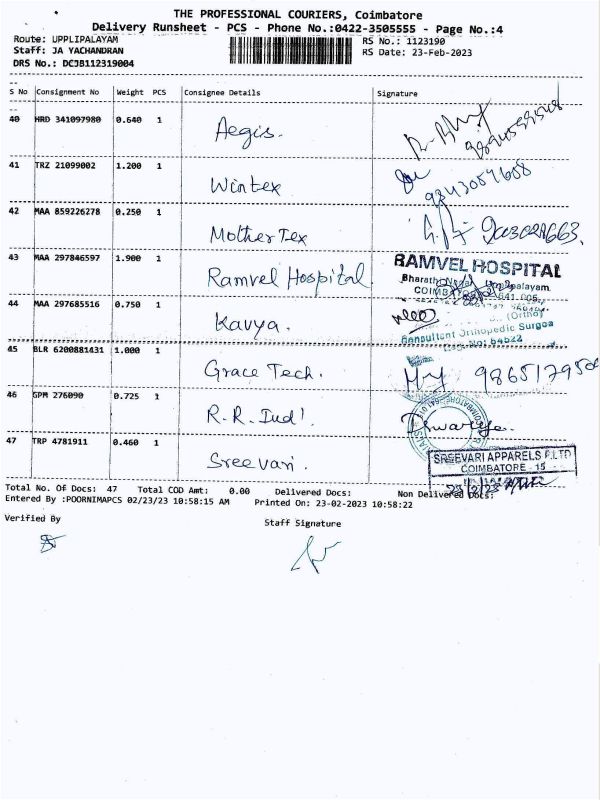 THE PROFESSIONAL COURIERS, Coimbatore
Delivery Runsheet - PCS - Phone No.:0422-3505555 - Page No.:4
Route: UPPLIPALAYAM RS No.: 1123190
Staff: JA YACHANDRAN RS Date: 23-Feb-2023
DRS No.: DCJB112319004
S No Consignment No Weight PCS Consignee Details Signature
40 HRD 341097980 0.640 1 Aegis.
41 TRZ 21099002 1.200 1 Wintex
9843057608
42 MAA 859226278 0.250 1 Mother Tex
43 MAA 297846597 1.900 1 Ramvel Hospital
RAMVEL HOSPITAL
44 MAA 297685516 0.750 1 Kavya.
(Ortho)
Consultant Orthopedic Surgeo
Reg. No: 64522
45 BLR 6200881431 1.000 1 Grace Tech.
46 GPM 276090 0.725 1 R.R. Ind!
47 TRP 4781911 0.460 1 Sreevari.
SREEVARI APPARELS P.LTD
COIMBATORE - 15
Total No. Of Docs: 47 Total COD Amt: 0.00 Delivered Docs: Non Delivered Docs:
Entered By :POORNIMAPCS 02/23/23 10:58:15 AM Printed On: 23-02-2023 10:58:22
Verified By Staff Signature